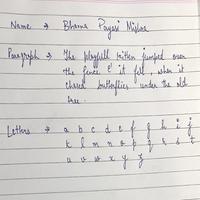 Name → Bhavna Payasi Mishra
Paragraph → The playfull kitten jumped over
the fence & it fell, when it
chased butterflies under the old
tree.
Letters → a b c d e f g h i j
k l m n o p q r s t
u v w x y z